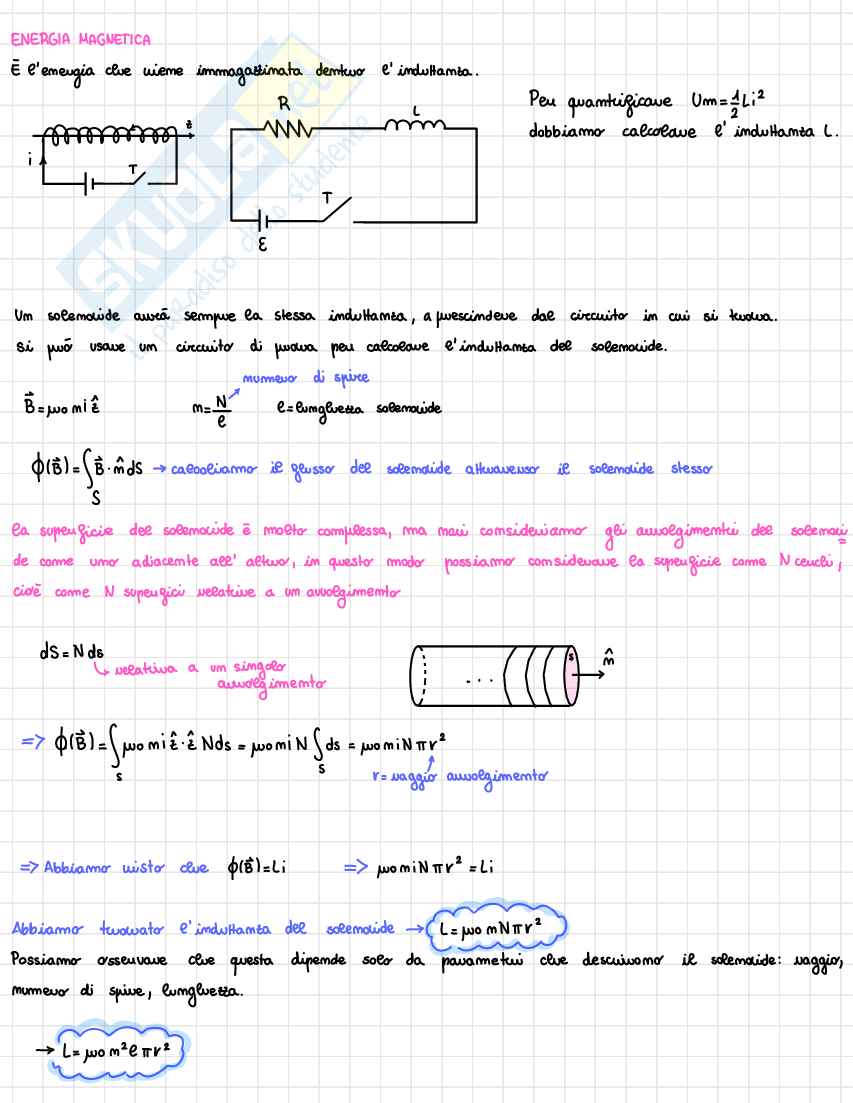 ENERGIA MAGNETICA
È l'energia che viene immagazzinata dentro l'induttanza.
Per quantificare Um=½Li²
dobbiamo calcolare l'induttanza L.
z
i
T
R
L
T
ε
SKUOLA.net
il paradiso dello studente
Un solenoide avrà sempre la stessa induttanza, a prescindere dal circuito in cui si trova.
Si può usare un circuito di prova per calcolare l'induttanza del solenoide.
numero di spire
B⃗=μ₀niẑ
n=N/l
l=lunghezza solenoide
ϕ(B⃗)=∫_S B⃗·n̂ dS → calcoliamo il flusso del solenoide attraverso il solenoide stesso
la superficie del solenoide è molto complessa, ma noi consideriamo gli avvolgimenti del solenoi
de come uno adiacente all'altro, in questo modo possiamo considerare la superficie come N cerchi,
cioè come N superfici relative a un avvolgimento
dS=Nds
↳ relativa a un singolo
avvolgimento
... s n̂
=> ϕ(B⃗)=∫_S μ₀niẑ·ẑ Nds = μ₀niN∫_S ds = μ₀niNπr²
r=raggio avvolgimento
=> Abbiamo visto che ϕ(B⃗)=Li => μ₀niNπr²=Li
Abbiamo trovato l'induttanza del solenoide → L=μ₀nNπr²
Possiamo osservare che questa dipende solo da parametri che descrivono il solenoide: raggio,
numero di spire, lunghezza.
→ L=μ₀n²lπr²